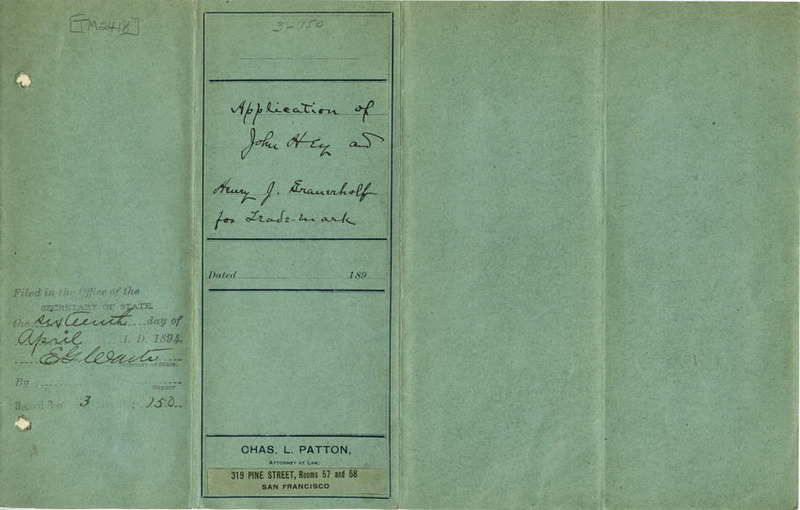 [TM2418]
Filed in the Office of the
SECRETARY OF STATE
the sixteenth day of
April A. D. 1894
E G Waite
Secretary of State.
By
Deputy
3 150
3-150
Application of
John Hey and
Henry J. Grauerholf
for Trade-mark
Dated 189
CHAS. L. PATTON,
ATTORNEY AT LAW,
319 PINE STREET, Rooms 57 and 58
SAN FRANCISCO